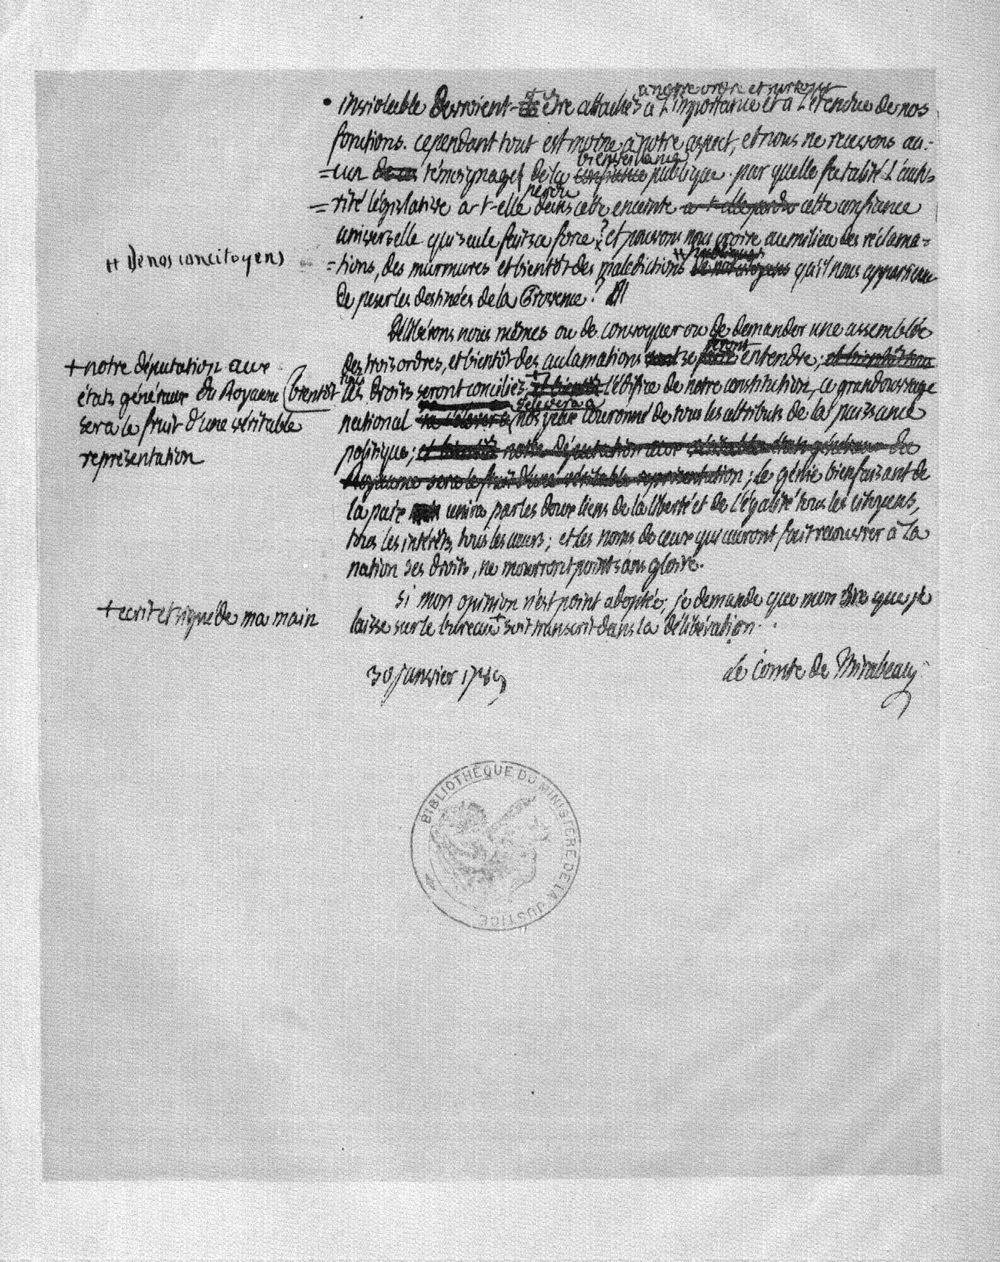 à notre ordre et surtout
inviolable devroient être attachés à l'importance et à l'étendue de nos
fonctions. cependant tout est morne à notre aspect, et nous ne recevons au-
=cun témoignage de la confiance publique. par quelle fatalité l'auto-
bienveillance
perdu
=rité législative a-t-elle dans cette enceinte a-t-elle perdu cette confiance
universelle qui seule fait sa force? et pouvons nous croire au milieu des réclama-
++ De nos concitoyens
++ publiques
=tions, des murmures et bientôt des malédictions de nos citoyens qu'il nous appartienne
de peser les destinées de la Provence?
Délibérons nous mêmes ou de convoquer ou de demander une assemblée
des trois ordres, et bientôt des acclamations vont se faire entendre; et bientôt tous
feront
+ notre députation aux
états généraux du Royaume (bientôt
sera le fruit d'une véritable
représentation
les droits seront conciliés, et bientôt l'édifice de notre constitution, ce grand ouvrage
s'elevera à
national va s'élever à nos yeux couronné de tous les attributs de la puissance
politique; et bientôt notre députation aux véritables états généraux du
Royaume sera le fruit d'une véritable représentation; le génie bienfaisant de
la paix unira par les doux liens de la liberté et de l'égalité tous les citoyens,
tous les intérêts, tous les cœurs; et les noms de ceux qui auront fait recouvrer à la
nation ses droits, ne mourront point sans gloire.
Si mon opinion n'est point adoptée, je demande que mon dire que je
+ ecrit et signé de ma main
laisse sur le bureau + soit transcrit dans la délibération.
30 janvier 1789
le Comte de Mirabeau
BIBLIOTHÈQUE DU MINISTÈRE DE LA JUSTICE